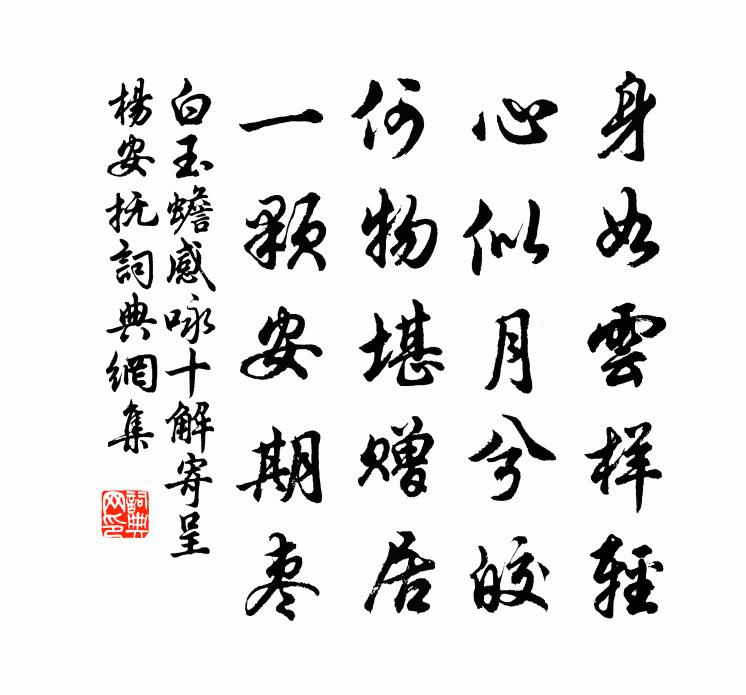 身如雲样輕
心似月兮皎
何物堪赠居
一顆安期枣
白玉蟾感咏十解寄呈
楊安抚詞典網集
詞典
网印